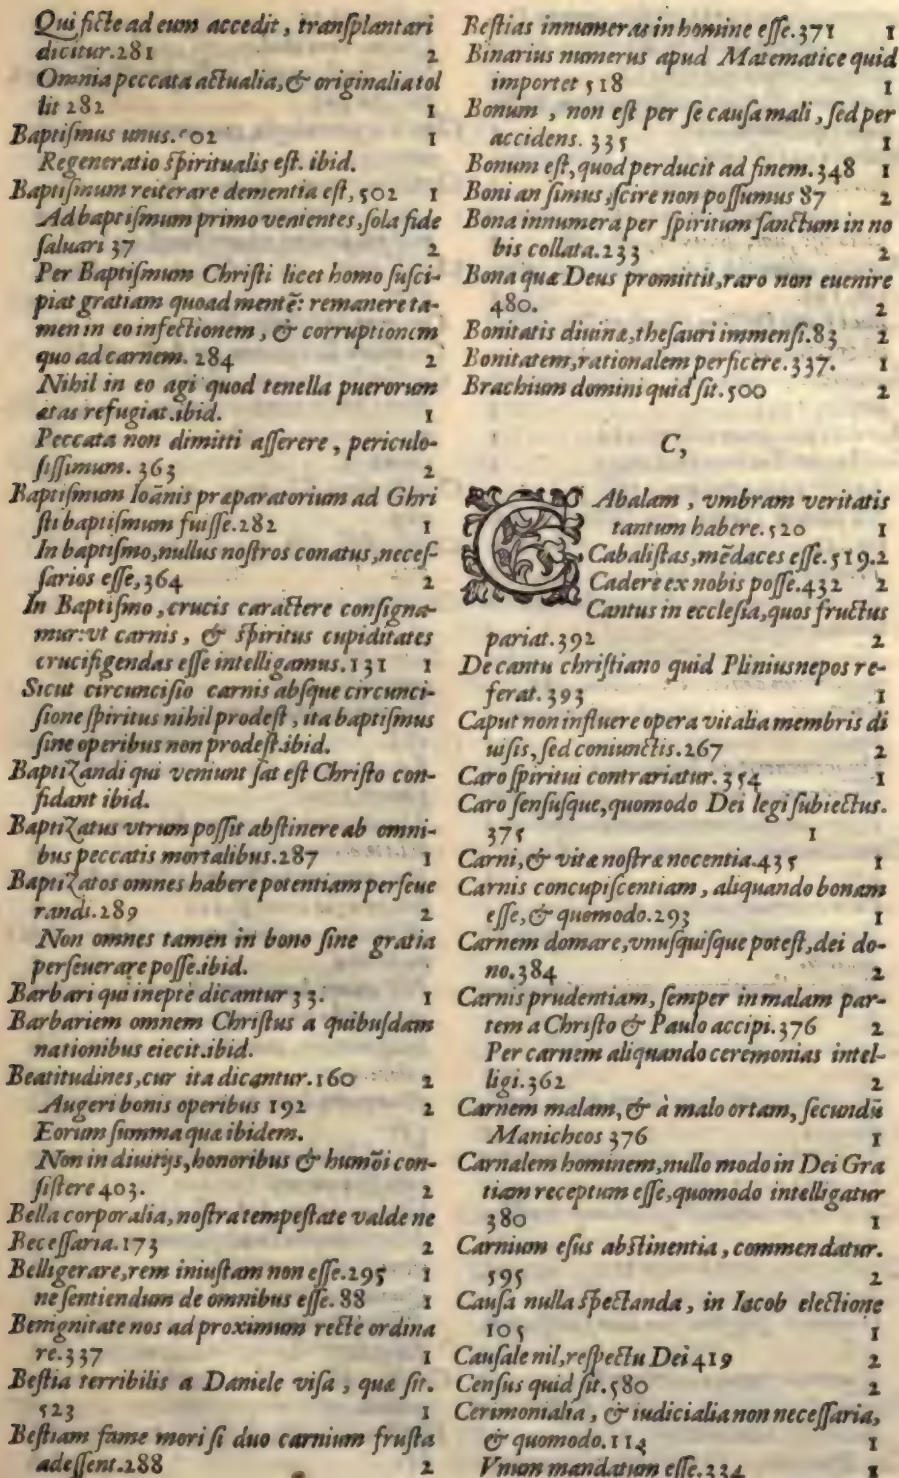 Qui ficte ad eum accedit, transplantari
dicitur.281 2
Omnia peccata actualia, & originalia tol
lit 282 1
Baptismus unus. 02 1
Regeneratio spiritualis est. ibid.
Baptismum reiterare dementia est, 502 1
Ad baptismum primo venientes, sola fide
saluari 37 2
Per Baptismum Christi licet homo susci-
piat gratiam quoad mentē: remanere ta-
men in eo infectionem, & corruptionem
quo ad carnem. 284 2
Nihil in eo agi quod tenella puerorum
ætas refugiat.ibid. 1
Peccata non dimitti asserere, periculo-
sissimum. 363 2
Baptismum Ioānis præparatorium ad Ghri
sti baptismum fuisse.282 1
In baptismo, nullus nostros conatus, neces-
sarios esse, 364 2
In Baptismo, crucis caractere consigna-
mur: vt carnis, & spiritus cupiditates
crucifigendas esse intelligamus. 131 1
Sicut circuncisio carnis absque circunci-
sione spiritus nihil prodest, ita baptismus
sine operibus non prodest.ibid.
Baptizandi qui veniunt sat est Christo con-
fidant ibid.
Baptizatus vtrum possit abstinere ab omni-
bus peccatis mortalibus.287 1
Baptizatos omnes habere potentiam perseue
randi.289 2
Non omnes tamen in bono sine gratia
perseuerare posse.ibid.
Barbari qui ineptè dicantur 33. 1
Barbariem omnem Christus a quibusdam
nationibus eiecit.ibid.
Beatitudines, cur ita dicantur.160 2
Augeri bonis operibus 192 2
Eorum summa quæ ibidem.
Non in diuitijs, honoribus & humōi con-
sistere 403. 2
Bella corporalia, nostra tempestate valde ne
Becessaria.173 2
Belligerare, rem iniustam non esse.295 1
ne sentiendum de omnibus esse. 88 1
Benignitate nos ad proximum rectè ordina
re.337 1
Bestia terribilis a Daniele visa, quæ sit.
523 1
Bestiam fame mori si duo carnium frusta
adessent.288 2
Bestias innumeras in homine esse.371 1
Binarius numerus apud Matematice quid
importet 518 1
Bonum, non est per se causa mali, sed per
accidens. 335 1
Bonum est, quod perducit ad finem.348 1
Boni an simus, scire non possumus 87 2
Bona innumera per spiritum sanctum in no
bis collata.233 2
Bona quæ Deus promittit, raro non euenire
480. 2
Bonitatis diuinæ, thesauri immensi.83 2
Bonitatem, rationalem perficere.337. 1
Brachium domini quid sit.500 2
C,
CAbalam, vmbram veritatis
tantum habere.520 1
Cabalistas, mēdaces esse.519.2
Cadere ex nobis posse.432 2
Cantus in ecclesia, quos fructus
pariat.392 2
De cantu christiano quid Plinius nepos re-
ferat.393 1
Caput non influere opera vitalia membris di
uisis, sed coniunctis.267 2
Caro spiritui contrariatur. 354 1
Caro sensusque, quomodo Dei legi subiectus.
375 1
Carni, & vitæ nostræ nocentia.435 1
Carnis concupiscentiam, aliquando bonam
esse, & quomodo.293 1
Carnem domare, vnusquisque potest, dei do-
no.384 2
Carnis prudentiam, semper in malam par-
tem a Christo & Paulo accipi.376 2
Per carnem aliquando ceremonias intel-
ligi.362 2
Carnem malam, & à malo ortam, secundū
Manicheos 376 1
Carnalem hominem, nullo modo in Dei Gra
tiam receptum esse, quomodo intelligatur
380 1
Carnium esus abstinentia, commendatur.
595 2
Causa nulla spectanda, in Iacob electione
105 1
Causale nil, respectu Dei 419 2
Census quid sit.580 2
Cerimonialia, & iudicialia non necessaria,
& quomodo.114 1
Vnum mandatum esse.234 1